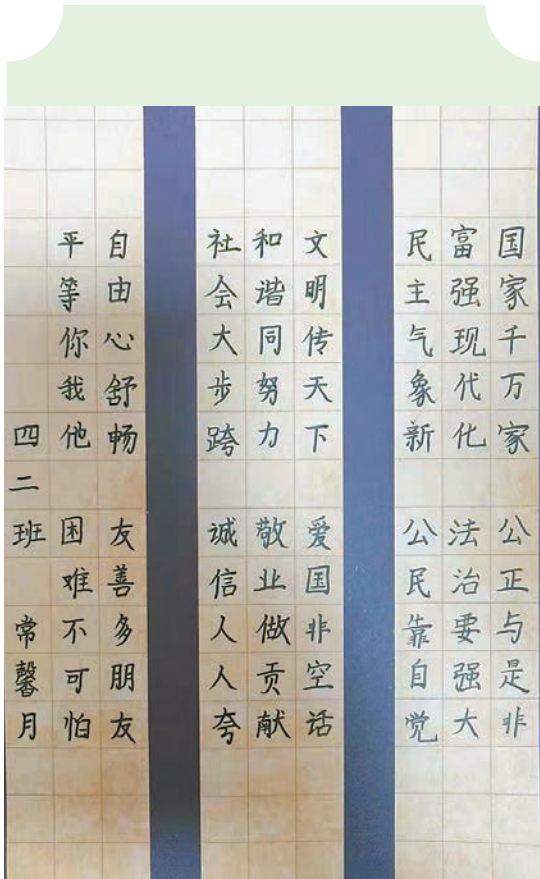 国家千万家 公正与是非
富强现代化 法治要强大
民主气象新 公民靠自觉
文明传天下 爱国非空话
和谐同努力 敬业做贡献
社会大步跨 诚信人人夸
自由心舒畅 友善多朋友
平等你我他 困难不可怕
四二班 常馨月